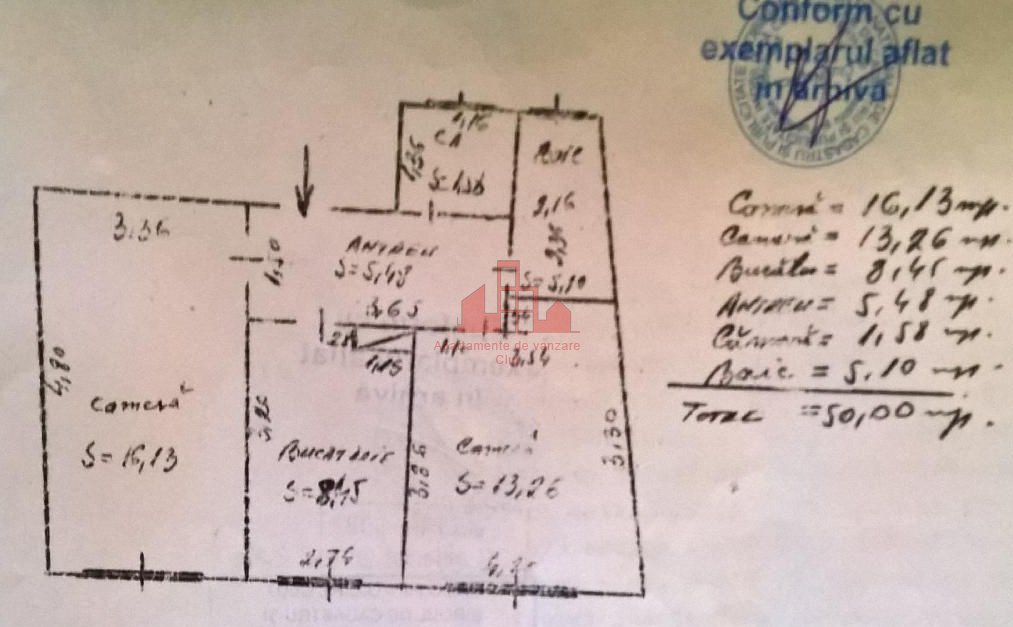 Conform cu
exemplarul aflat
in arhiva
1,16
CĂ
1,36
S=1,58
Baie
2,16
2,36
S=5,10
3,36
1,50
ANTREU
S=5,48
3,65
Apartamente de vanzare
Cluj
1,15
3,54
4,80
Cameră
S=16,13
3,26
BUCATARIE
S=8,45
3,86
Cameră
S=13,26
3,30
2,76
Cameră = 16,13 mp.
Cameră = 13,26 mp.
Bucăta = 8,45 mp.
ANTREU = 5,48 mp.
Cămară = 1,58 mp.
Baie = 5,10 mp.
TOTAL = 50,00 mp.